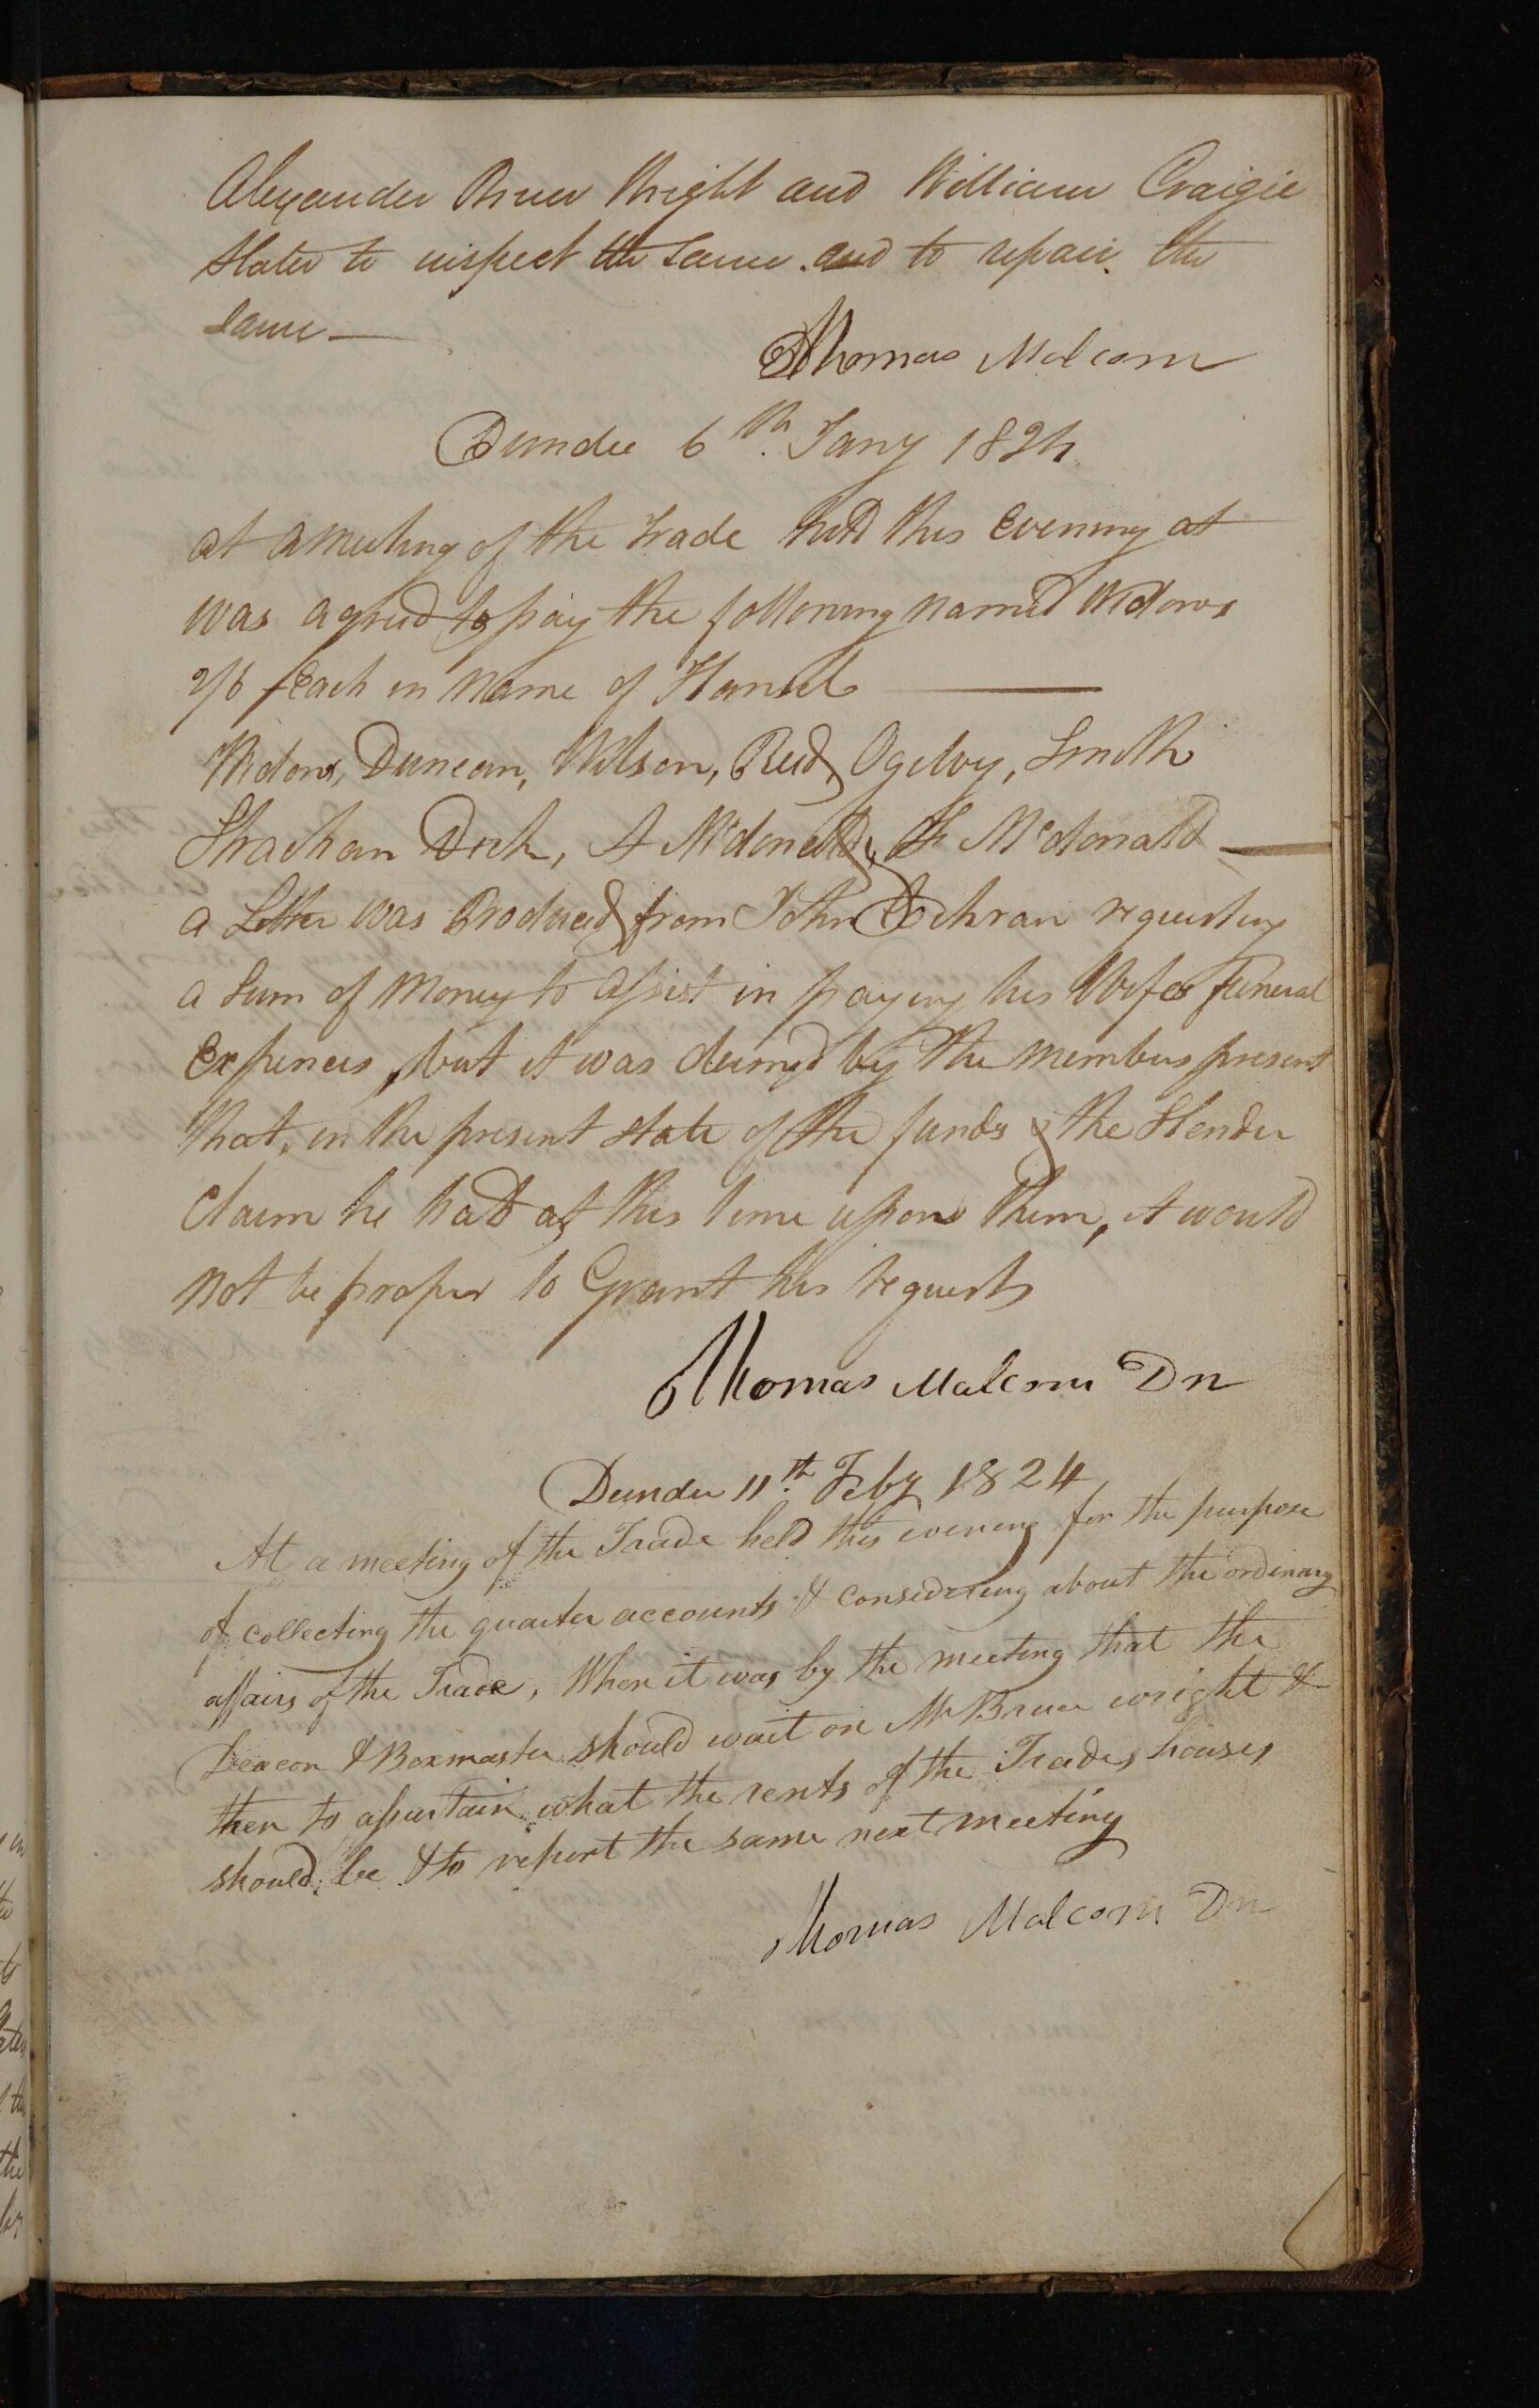 Alexander Bruce Wright and William Craigie
Slater to inspect the Same and to repair the
Same —
Thomas Malcom
Dundee 6th. Jany 1824
at a meeting of the Trade held this Evening at
was agreed to pay the following named Widows
2/6 Each in Name of Hansel
Widows, Duncan, Wilson, Reid, Ogelvy, Smith
Strachan Dick, A Mcdonald, Mcdonald
a Letter was Produced from John Cochran requesting
a Sum of Money to assist in paying his Wifes funeral
Expences, but it was deemed by the members present
that, in the present state of the funds & the Slender
Claim he had at this time upon them, it would
not be proper to Grant his request
Thomas Malcom Dn
Dundee 11th. Feby 1824
At a meeting of the Trade held this evening for the purpose
of collecting the quarter accounts & considering about the ordinary
affairs of the Trade, When it was by the meeting that the
Deacon & Boxmaster should wait on Mr Bruce wright &
then to assertain what the rents of the Trades houses
should be & to report the same next meeting
Thomas Malcom Dn